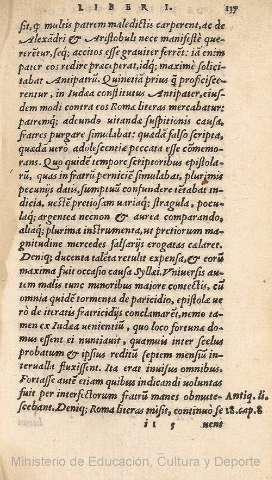 LIBER I. 117
sit, q̃ multis patrem maledictis carperent, ac de
Alexãdri & Aristobuli nece manifestè que-
reretur, seq; accitos esse grauiter ferrẽt: iã enim
pater eos redire præceperat, idq; maximè solici-
tabat Antipatrũ. Quinetiã prius q̃ proficisce-
rentur, in Iudæa constitutus Antipater, eius-
dem modi contra eos Romæ literas mercabatur:
patremq; adeundo uitandæ suspitionis causa,
fratres purgare simulabat: quædã falso scripta,
quædã uerò adolescentiæ peccata esse cõmemo-
rans. Quo quidẽ tempore scriptoribus epistola-
rũ, quas in fratrũ perniciẽ simulabat, plurimis
pecunijs datis, sumptuũ confundere tẽtabat in-
dicia, uestẽ pretiosam uariaq; stragula, pocu-
laq; argentea necnon & aurea comparando,
aliaq; plurima instrumenta, ut pretiorum ma-
gnitudine mercedes falsarijs erogatas cælaret.
Deniq; ducenta talẽta retulit expensa, & eorũ
maxima fuit occasio causa Syllæi. Vniuersis au-
tem malis tunc minoribus maiore contectis, cũ
omnia quidẽ tormenta de paricidio, epistolæ ue
rò de iteratis fratricidijs conclamarẽt, nemo ta-
men ex Iudæa uenientiũ, quo loco fortuna do-
mus essent ei nuntiauit, quamuis inter scelus
probatum & ipsius reditũ septem mensiũ in-
terualla fluxissent. Ita erat inuisus omnibus.
Fortasse autẽ etiam quibus indicandi uoluntas
fuit per interfectorum fratrũ manes obmute- Antiq. li.
scebant. Deniq; Roma literas misit, continuo se 18. cap. 8
ii 5 uent
Ministerio de Educación, Cultura y Deporte